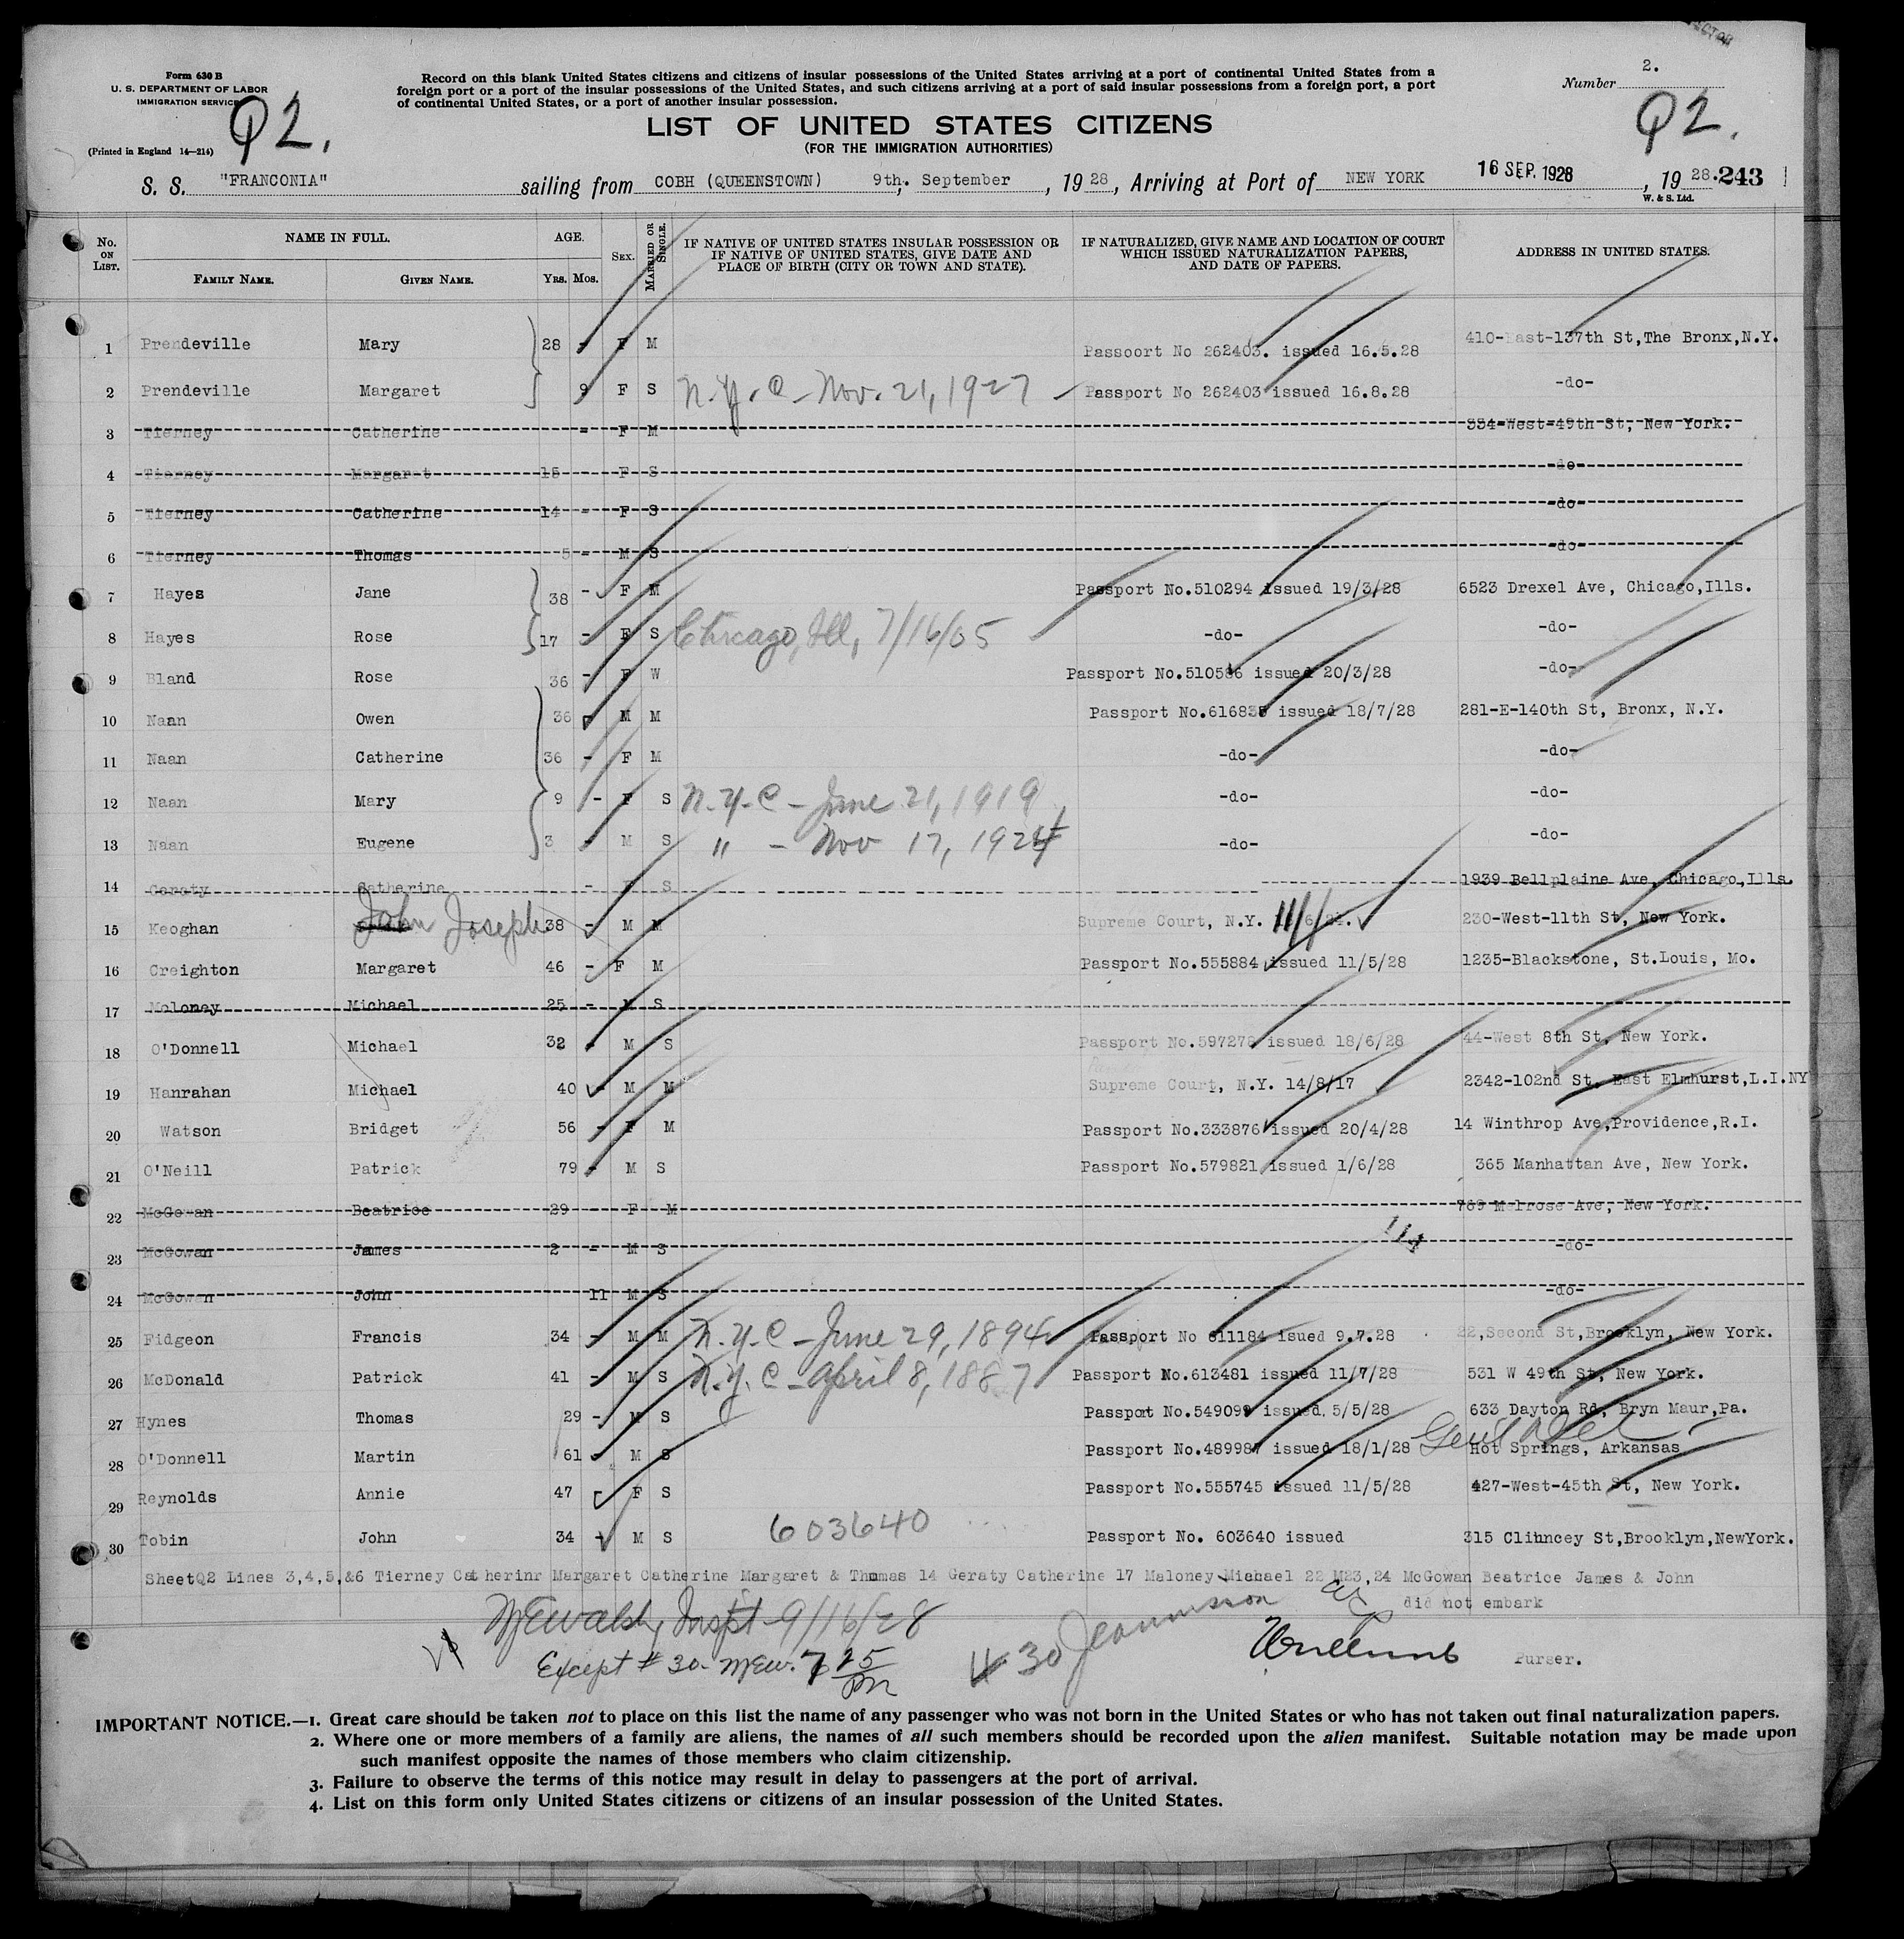 Form 630 B
U. S. DEPARTMENT OF LABOR
IMMIGRATION SERVICE
(Printed in England 14—214)
Q2.
Record on this blank United States citizens and citizens of insular possessions of the United States arriving at a port of continental United States from a
foreign port or a port of the insular possessions of the United States, and such citizens arriving at a port of said insular possessions from a foreign port, a port
of continental United States, or a port of another insular possession.
Number 2.
Q2.
LIST OF UNITED STATES CITIZENS
(FOR THE IMMIGRATION AUTHORITIES)
S. S. "FRANCONIA" sailing from COBH (QUEENSTOWN) 9th, September, 19 28, Arriving at Port of NEW YORK 16 SEP. 1928, 19 28. 243
W. & S. Ltd.
No. ON LIST. NAME IN FULL. FAMILY NAME. GIVEN NAME. AGE. YRS. MOS. SEX. MARRIED OR SINGLE. IF NATIVE OF UNITED STATES INSULAR POSSESSION OR IF NATIVE OF UNITED STATES, GIVE DATE AND PLACE OF BIRTH (CITY OR TOWN AND STATE). IF NATURALIZED, GIVE NAME AND LOCATION OF COURT WHICH ISSUED NATURALIZATION PAPERS, AND DATE OF PAPERS. ADDRESS IN UNITED STATES.
1 Prendeville Mary 28 - F M Passoort No 262403. issued 16.5.28 410-East-137th St,The Bronx,N.Y.
2 Prendeville Margaret 9 F S N.Y.C - Nov. 21, 1927 Passport No 262403 issued 16.8.28 -do-
3 Tierney Catherine - F M 334-West-49th St, New York.
4 Tierney Margaret 15 - F S -do-
5 Tierney Catherine 14 - F S -do-
6 Tierney Thomas 5 - M S -do-
7 Hayes Jane 38 - F M Passport No.510294 issued 19/3/28 6523 Drexel Ave, Chicago,Ills.
8 Hayes Rose 17 - F S Chicago, Ill, 7/16/05 -do- -do-
9 Bland Rose 36 - F W Passport No.510586 issued 20/3/28 -do-
10 Naan Owen 36 - M M Passport No.616835 issued 18/7/28 281-E-140th St, Bronx, N.Y.
11 Naan Catherine 36 - F M -do- -do-
12 Naan Mary 9 - F S N.Y.C - June 21, 1919 -do- -do-
13 Naan Eugene 3 - M S " - Nov 17, 1924 -do- -do-
14 Geraty Catherine - F S 1939 Bellplaine Ave, Chicago,Ills.
15 Keoghan John Joseph 38 - M M Supreme Court, N.Y. 11/6/ 230-West-11th St, New York.
16 Creighton Margaret 46 - F M Passport No.555884 issued 11/5/28 1235-Blackstone, St.Louis, Mo.
17 Moloney Michael 25 - M S
18 O'Donnell Michael 32 - M S Passport No.597278 issued 18/6/28 44-West 8th St, New York.
19 Hanrahan Michael 40 - M M Supreme Court, N.Y. 14/8/17 2342-102nd St, East Elmhurst,L.I.NY
20 Watson Bridget 56 - F M Passport No.333876 issued 20/4/28 14 Winthrop Ave,Providence,R.I.
21 O'Neill Patrick 79 - M S Passport No.579821 issued 1/6/28 365 Manhattan Ave, New York.
22 McGowan Beatrice 29 - F M 769 Melrose Ave, New York.
114
23 McGowan James 2 - M S -do-
24 McGowan John 11 M S -do-
25 Fidgeon Francis 34 - M M N.Y.C - June 29, 1894 Passport No 611184 isued 9.7.28 22,Second St,Brooklyn, New York.
26 McDonald Patrick 41 - M S N.Y.C - April 8, 1887 Passport No.613481 issued 11/7/28 531 W 49th St, New York.
27 Hynes Thomas 29 - M S Passport No.549099 issued, 5/5/28 633 Dayton Rd, Bryn Maur,Pa.
28 O'Donnell Martin 61 - M S Passport No.489987 issued 18/1/28 Hot Springs, Arkansas
29 Reynolds Annie 47 - F S Passport No.555745 issued 11/5/28 427-West-45th St, New York.
30 Tobin John 34 - M S 603640 Passport No. 603640 issued 315 Clihncey St,Brooklyn,NewYork.
SheetQ2 Lines 3,4,5,&6 Tierney Catherinr Margaret Catherine Margaret & Thomas 14 Geraty Catherine 17 Maloney Miahael 22 M23,24 McGowan Beatrice James & John
did not embark
MEWalsh, Inspt - 9/16/28
Except # 30 - MEW. 7 25 PM
# 30
Purser.
IMPORTANT NOTICE.—1. Great care should be taken not to place on this list the name of any passenger who was not born in the United States or who has not taken out final naturalization papers.
2. Where one or more members of a family are aliens, the names of all such members should be recorded upon the alien manifest. Suitable notation may be made upon
such manifest opposite the names of those members who claim citizenship.
3. Failure to observe the terms of this notice may result in delay to passengers at the port of arrival.
4. List on this form only United States citizens or citizens of an insular possession of the United States.